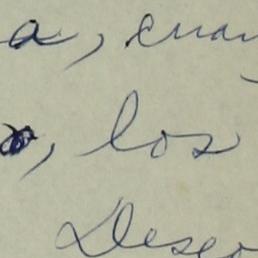 a, cuan
, los
Deseo